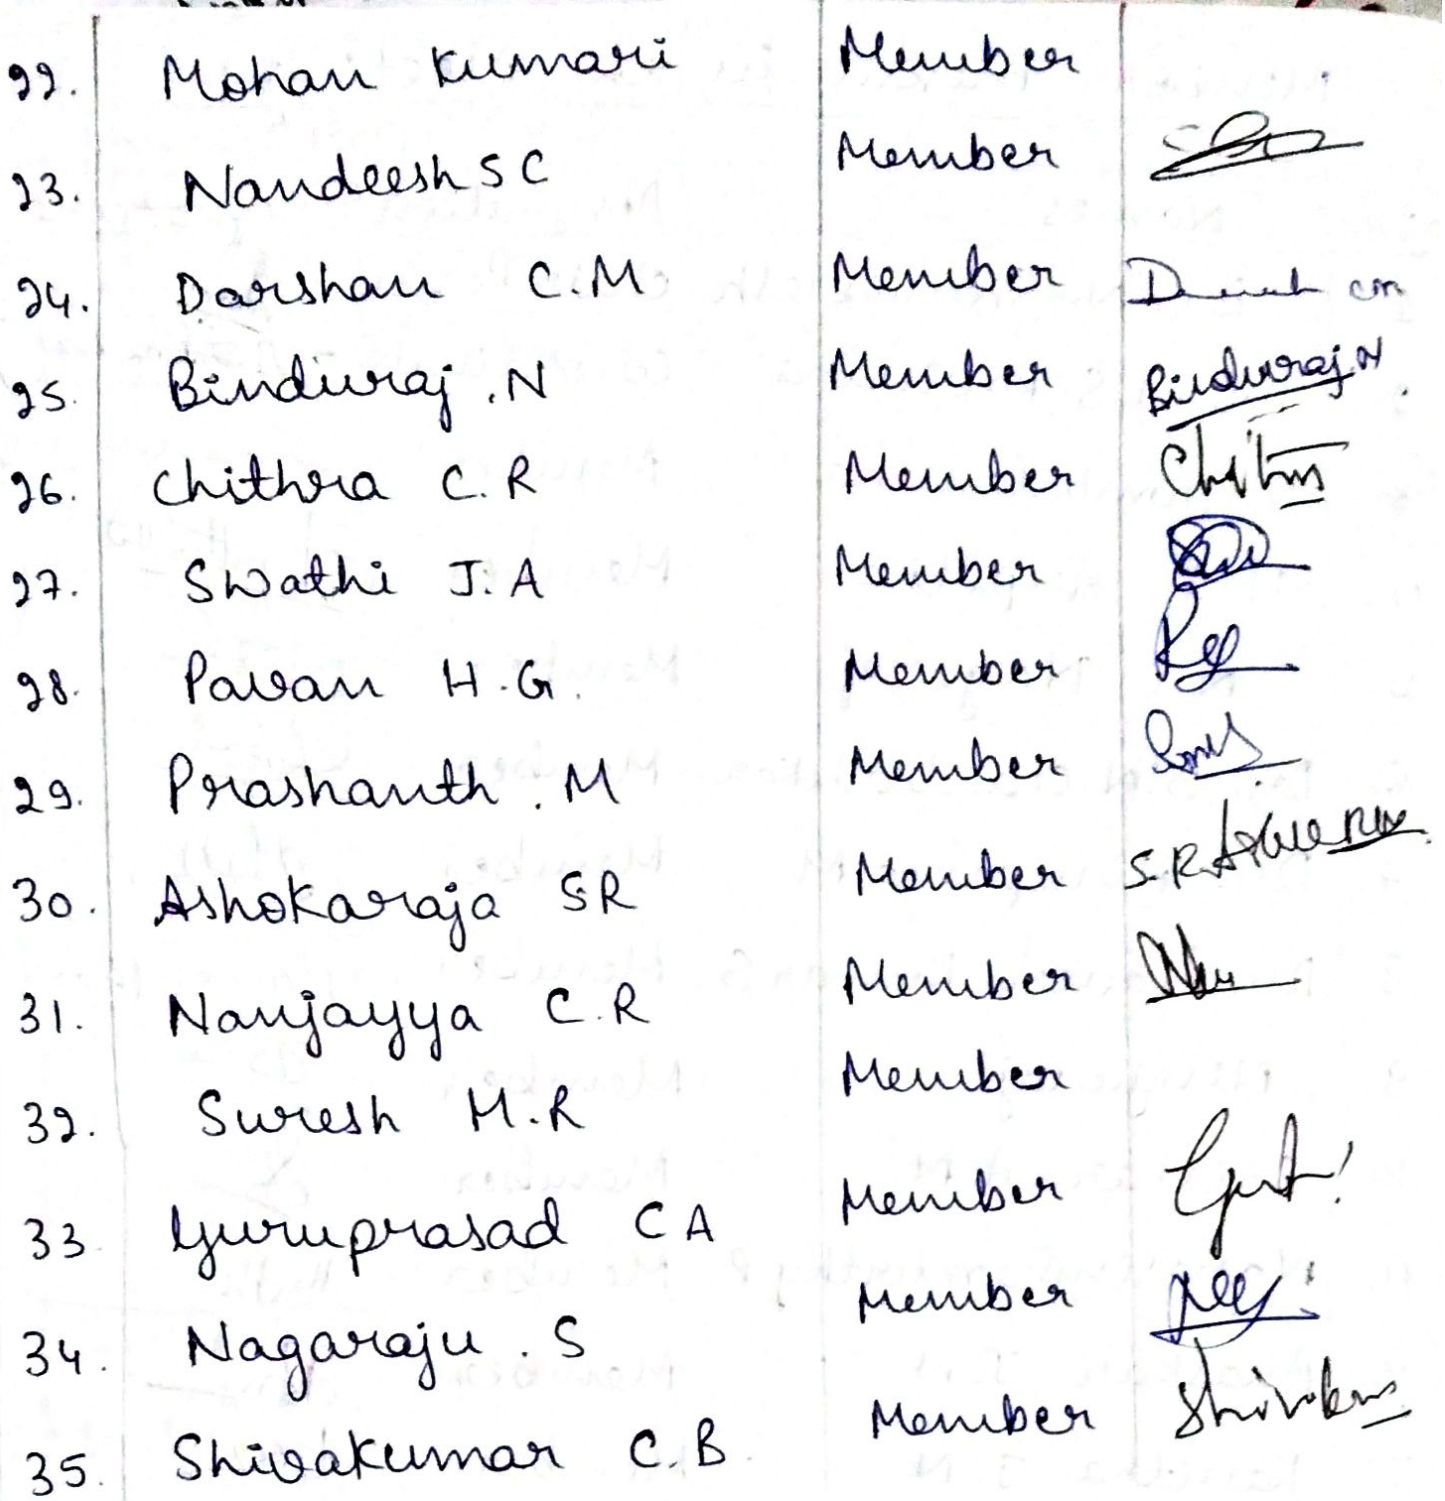 22. Mohan Kumari Member
23. Nandeesh S C Member
24. Darshan C.M Member
25. Binduraj .N Member Binduraj.N
26. Chithra C.R Member
27. Swathi J.A Member
28. Pavan H.G. Member
29. Prashanth .M Member
30. Ashokaraja S.R Member S.R
31. Nanjayya C.R Member
32. Suresh M.R Member
33 Guruprasad C A Member
34. Nagaraju .S Member
35. Shivakumar C.B Member